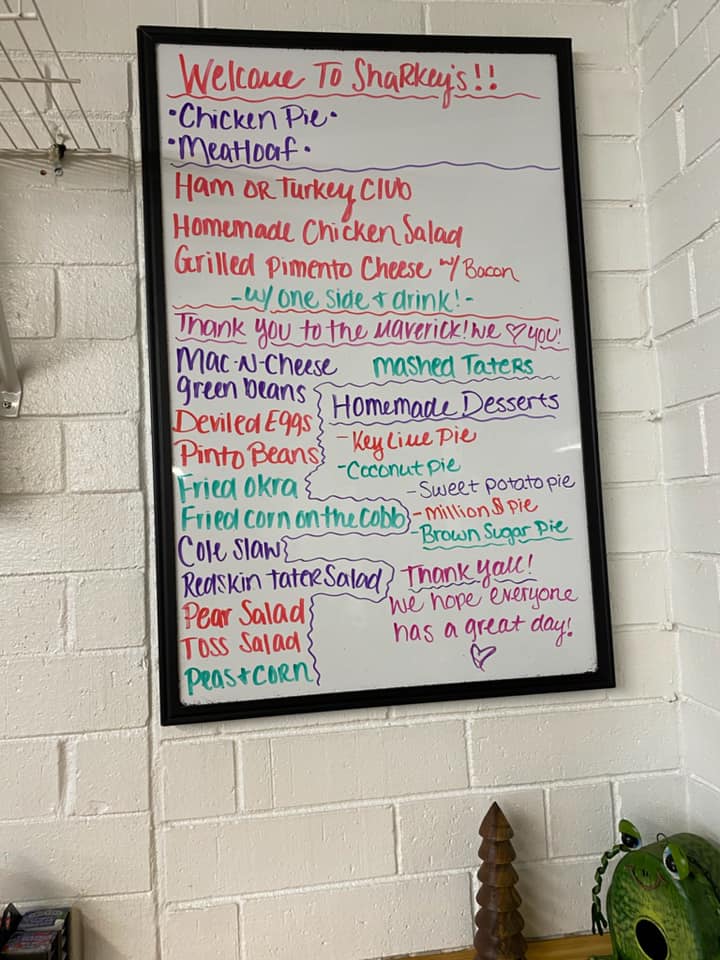 Welcome To Sharkey's!!
•Chicken Pie•
•Meatloaf•
Ham or Turkey Club
Homemade Chicken Salad
Grilled Pimento Cheese w/ Bacon
-w/ one side + drink!-
Thank you to the Maverick! We ♡ you!
Mac-N-Cheese
Mashed Taters
green beans
Deviled Eggs
Pinto Beans
Fried Okra
Fried corn on the cobb
Cole Slaw
Redskin tater Salad
Pear Salad
Toss Salad
Peas + corn
Homemade Desserts
-Key Lime Pie
-Coconut pie
-Sweet potato pie
-Million $ pie
-Brown Sugar Pie
Thank yall!
We hope everyone
has a great day!
♡